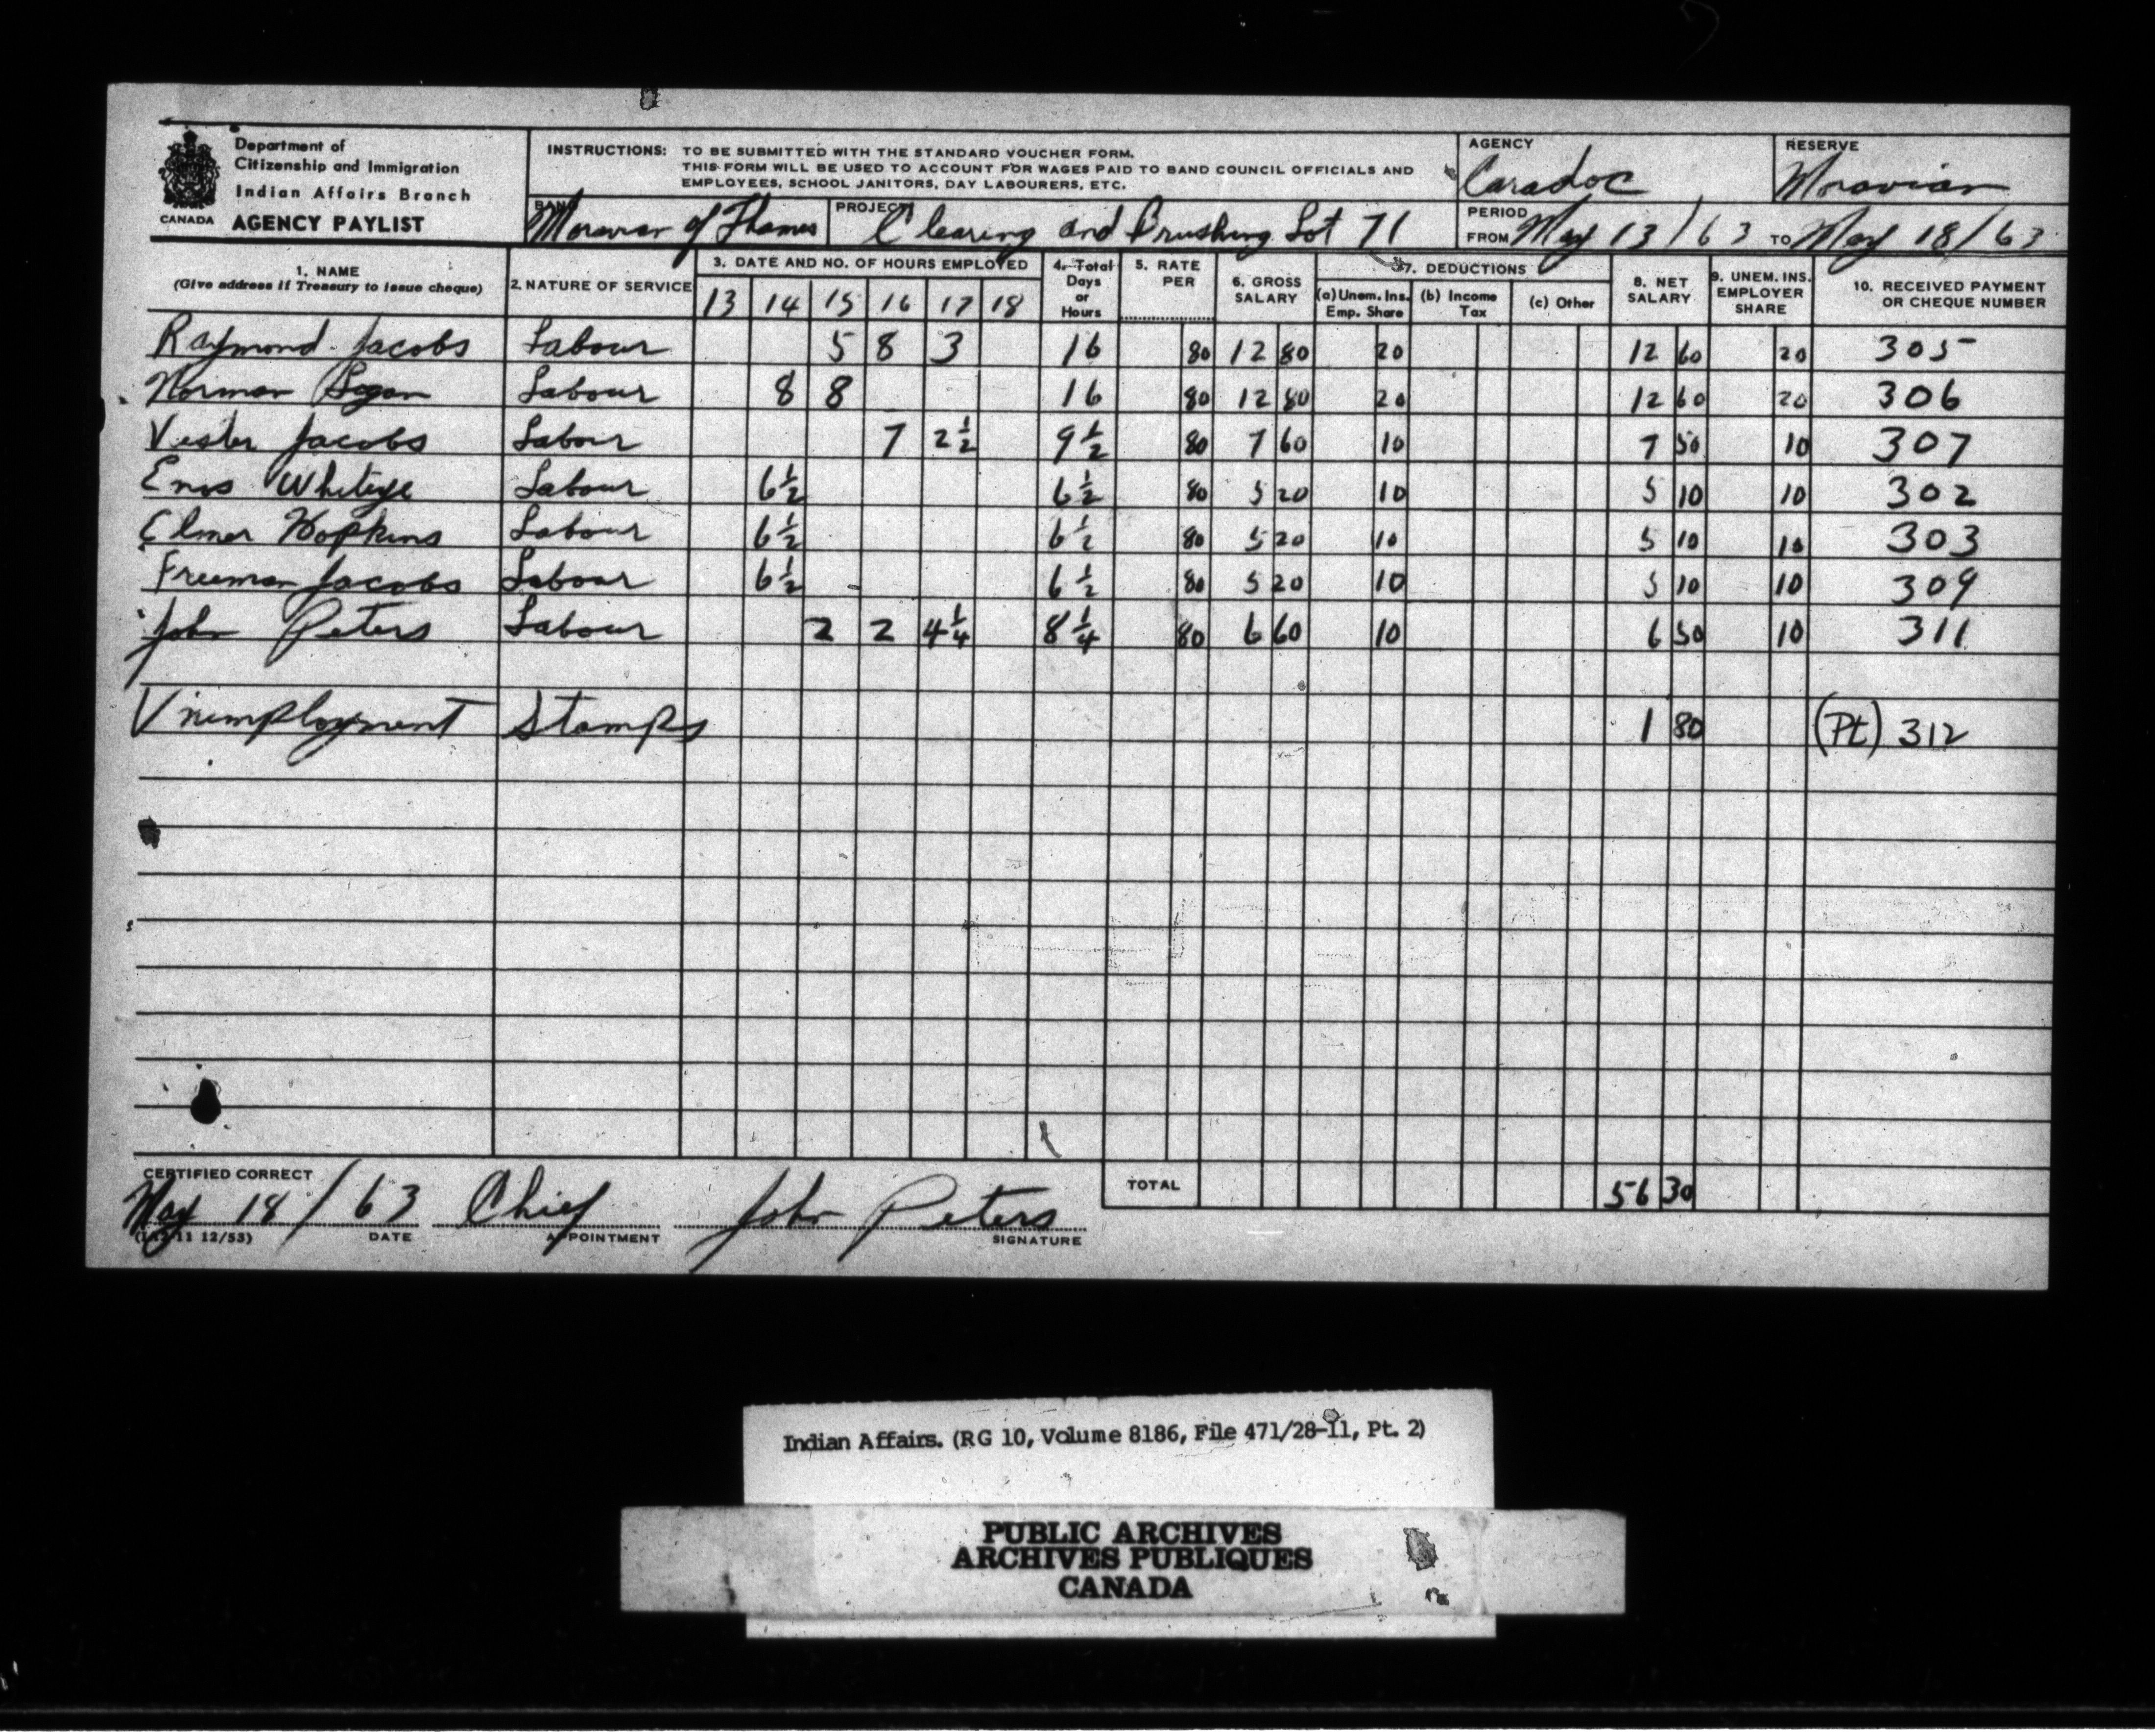 Department of
Citizenship and Immigration
Indian Affairs Branch
CANADA AGENCY PAYLIST
INSTRUCTIONS: TO BE SUBMITTED WITH THE STANDARD VOUCHER FORM.
THIS FORM WILL BE USED TO ACCOUNT FOR WAGES PAID TO BAND COUNCIL OFFICIALS AND
EMPLOYEES, SCHOOL JANITORS, DAY LABOURERS, ETC.
AGENCY Caradoc
RESERVE Moravian
BAND Moravian of Thames
PROJECT Clearing and Brushing Lot 71
PERIOD
FROM May 13/63 TO May 18/63
1. NAME
(Give address if Treasury to issue cheque)
2. NATURE OF SERVICE
3. DATE AND NO. OF HOURS EMPLOYED
13 14 15 16 17 18
4. Total
Days
or
Hours
5. RATE
PER
6. GROSS
SALARY
7. DEDUCTIONS
(a) Unem. Ins.
Emp. Share
(b) Income
Tax
(c) Other
8. NET
SALARY
9. UNEM. INS.
EMPLOYER
SHARE
10. RECEIVED PAYMENT
OR CHEQUE NUMBER
Raymond Jacobs Labour 5 8 3 16 80 12 80 20 12 60 20 305
Norman Logan Labour 8 8 16 80 12 80 20 12 60 20 306
Vester Jacobs Labour 7 2½ 9½ 80 7 60 10 7 50 10 307
Enos Whiteye Labour 6½ 6½ 80 5 20 10 5 10 10 302
Elmer Hopkins Labour 6½ 6½ 80 5 20 10 5 10 10 303
Freeman Jacobs Labour 6½ 6½ 80 5 20 10 5 10 10 309
John Peters Labour 2 2 4¼ 8¼ 80 6 60 10 6 50 10 311
Unemployment Stamps 1 80 (Pt) 312
TOTAL 56 30
CERTIFIED CORRECT
May 18/63 Chief John Peters
11 12/53) DATE APPOINTMENT SIGNATURE
Indian Affairs. (RG 10, Volume 8186, File 471/28-11, Pt. 2)
PUBLIC ARCHIVES
ARCHIVES PUBLIQUES
CANADA